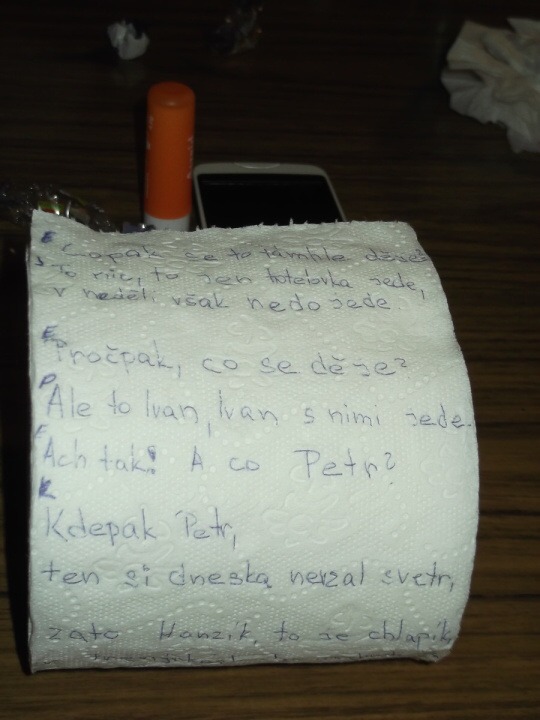 E Copak se to támhle děje?
J To nic, to jen hotelovka jede,
v neděli však nedojede.
E
Pročpak, co se děje?
P
Ale to Ivan, Ivan s nimi jede.
Ach tak! A co Petr?
K
Kdepak Petr,
ten si dneska nevzal svetr,
zato Honzík, to je chlapík